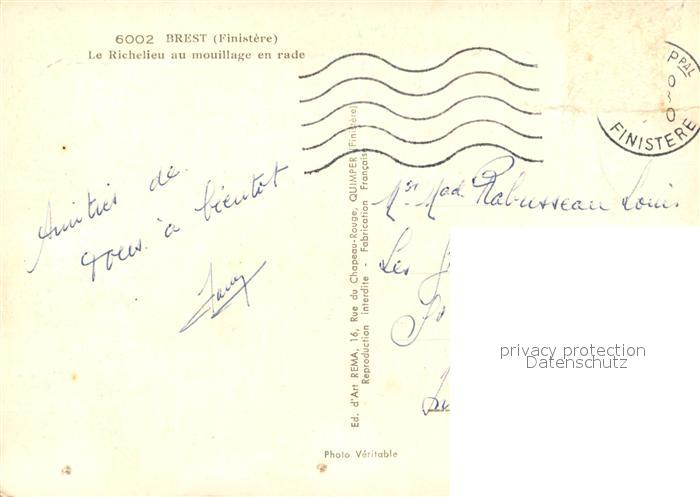 6002 BREST (Finistère)
Le Richelieu au mouillage en rade
PPAL
FINISTERE
Amitiés de
Tous à bientôt
Ed. d'Art REMA, 16, Rue du Chapeau-Rouge, QUIMPER (Finistère)
Reproduction interdite - Fabrication Française
Mr Mad Rabusseau Louis
Les
privacy protection
Datenschutz
Photo Véritable